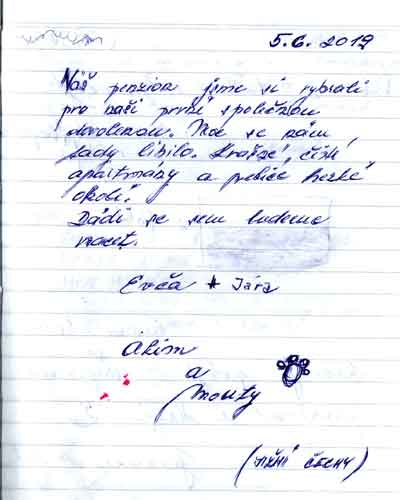 5.6.2019
Váš penzion jsme si vybrali
pro naši první společnou
dovolenou. Moc se nám
tady líbilo. Krásné, čisté
apartmány a velice hezké
okolí.
Rádi se sem budeme
vracet.
Evča + Jára
a
Mouty
(JIŽNÍ ČECHY)